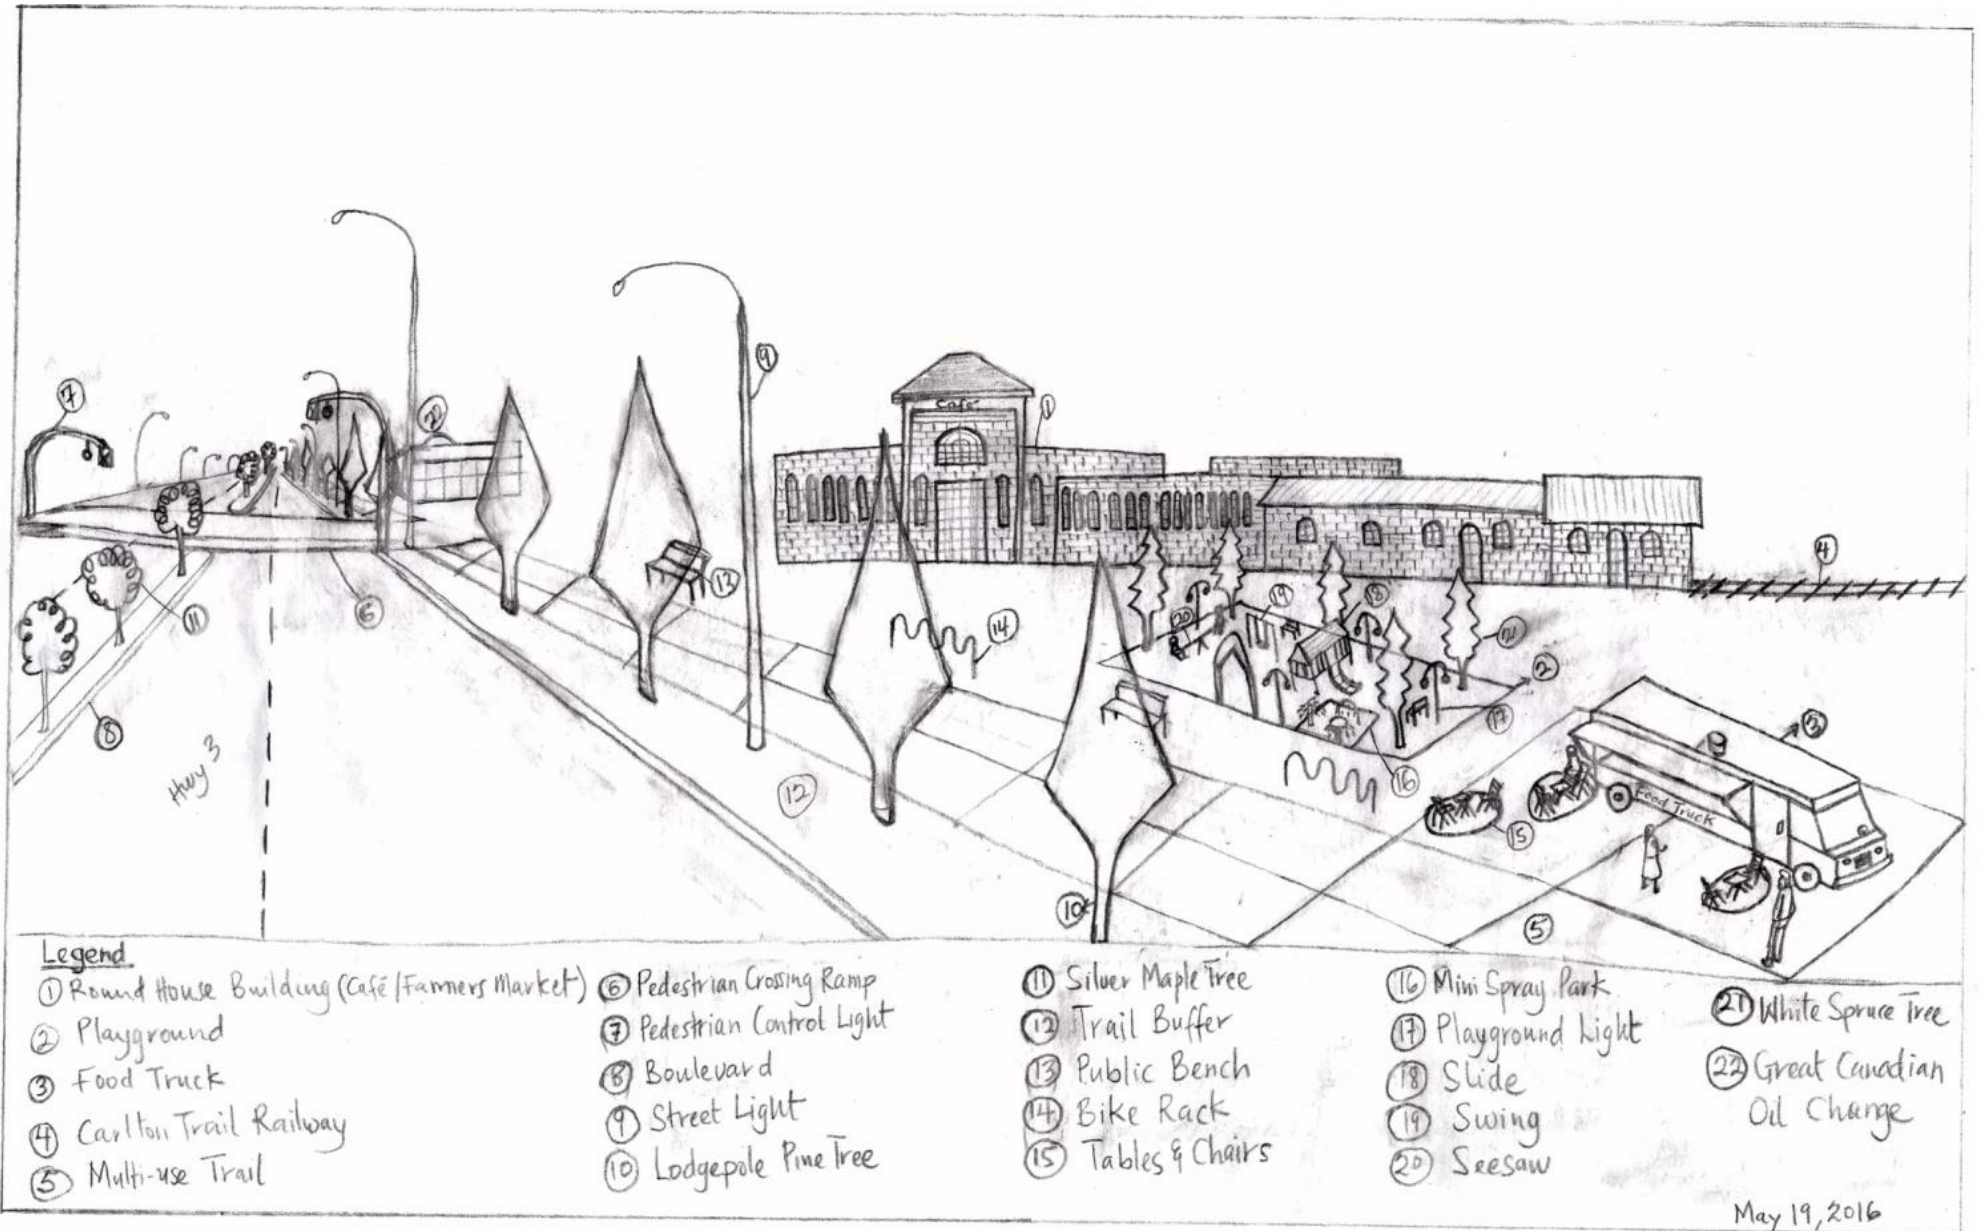 7
9
Café
1
22
4
13
14
20
19
18
21
2
11
6
17
3
8
Hwy 3
12
16
Food Truck
15
10
5
Legend
1 Round House Building (Café/Farmers Market)
2 Playground
3 Food Truck
4 Carlton Trail Railway
5 Multi-use Trail
6 Pedestrian Crossing Ramp
7 Pedestrian Control Light
8 Boulevard
9 Street Light
10 Lodgepole Pine Tree
11 Silver Maple Tree
12 Trail Buffer
13 Public Bench
14 Bike Rack
15 Tables & Chairs
16 Mini Spray Park
17 Playground Light
18 Slide
19 Swing
20 Seesaw
21 White Spruce Tree
22 Great Canadian
Oil Change
May 19, 2016